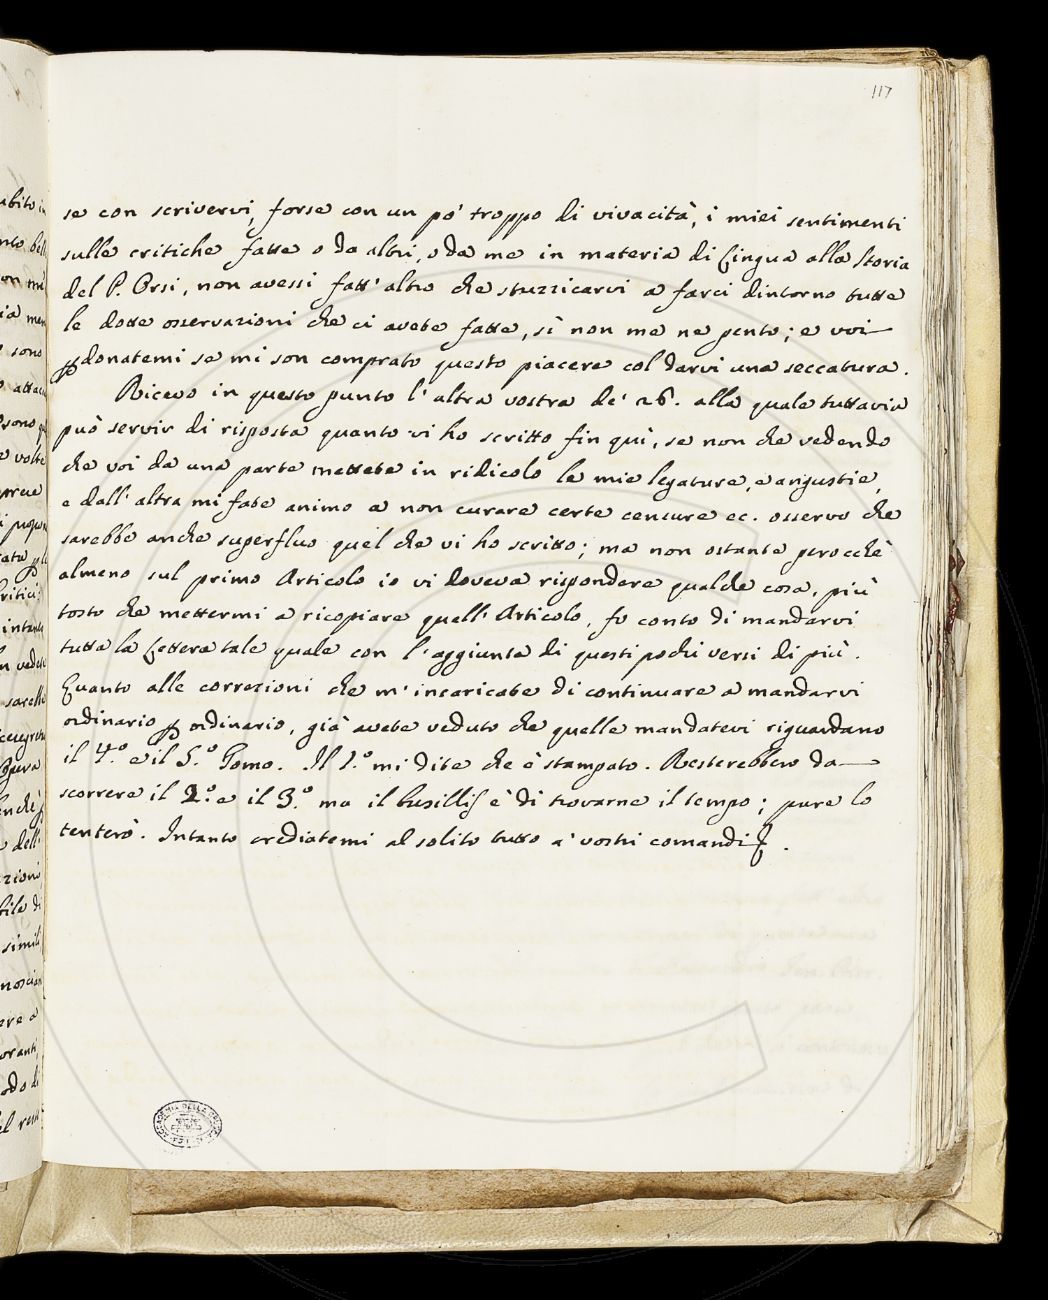 117
se con scrivervi, forse con un pò troppo di vivacità, i miei sentimenti
sulle critiche fatte o da altri, o da me in materia di Lingua alla Storia
del P. Orsi, non avessi fatt' altro che stuzzicarvi a farci dintorno tutte
le dotte osservazioni che ci avete fatte, sì non me ne pento; e voi
donatemi se mi son comprato questo piacere col darvi una seccatura.
Ricevo in questo punto l' altra vostra de' 26. alla quale tuttavia
può servir di risposta quanto vi ho scritto fin quì, se non che vedendo
che voi da una parte mettete in ridicolo le mie legature, e angustie,
e dall' altra mi fate animo a non curare certe censure ec. osservo che
sarebbe anche superfluo quel che vi ho scritto; ma non ostante perocchè
almeno sul primo Articolo io vi doveva rispondere qualche cosa, più
tosto che mettermi a ricopiare quell' Articolo, fo conto di mandarvi
tutta la Lettera tale quale con l' aggiunta di questi pochi versi di più.
Quanto alle correzioni che m' incaricate di continuare a mandarvi
ordinario ordinario, già avete veduto che quelle mandatevi riguardano
il 4.º e il 5.º Tomo. Il 1.º mi dite che è stampato. Resterebbero da
scorrere il 2.º e il 3.º ma il busillis è di trovarne il tempo; pure lo
tenterò. Intanto crediatemi al solito tutto a' vostri comandi